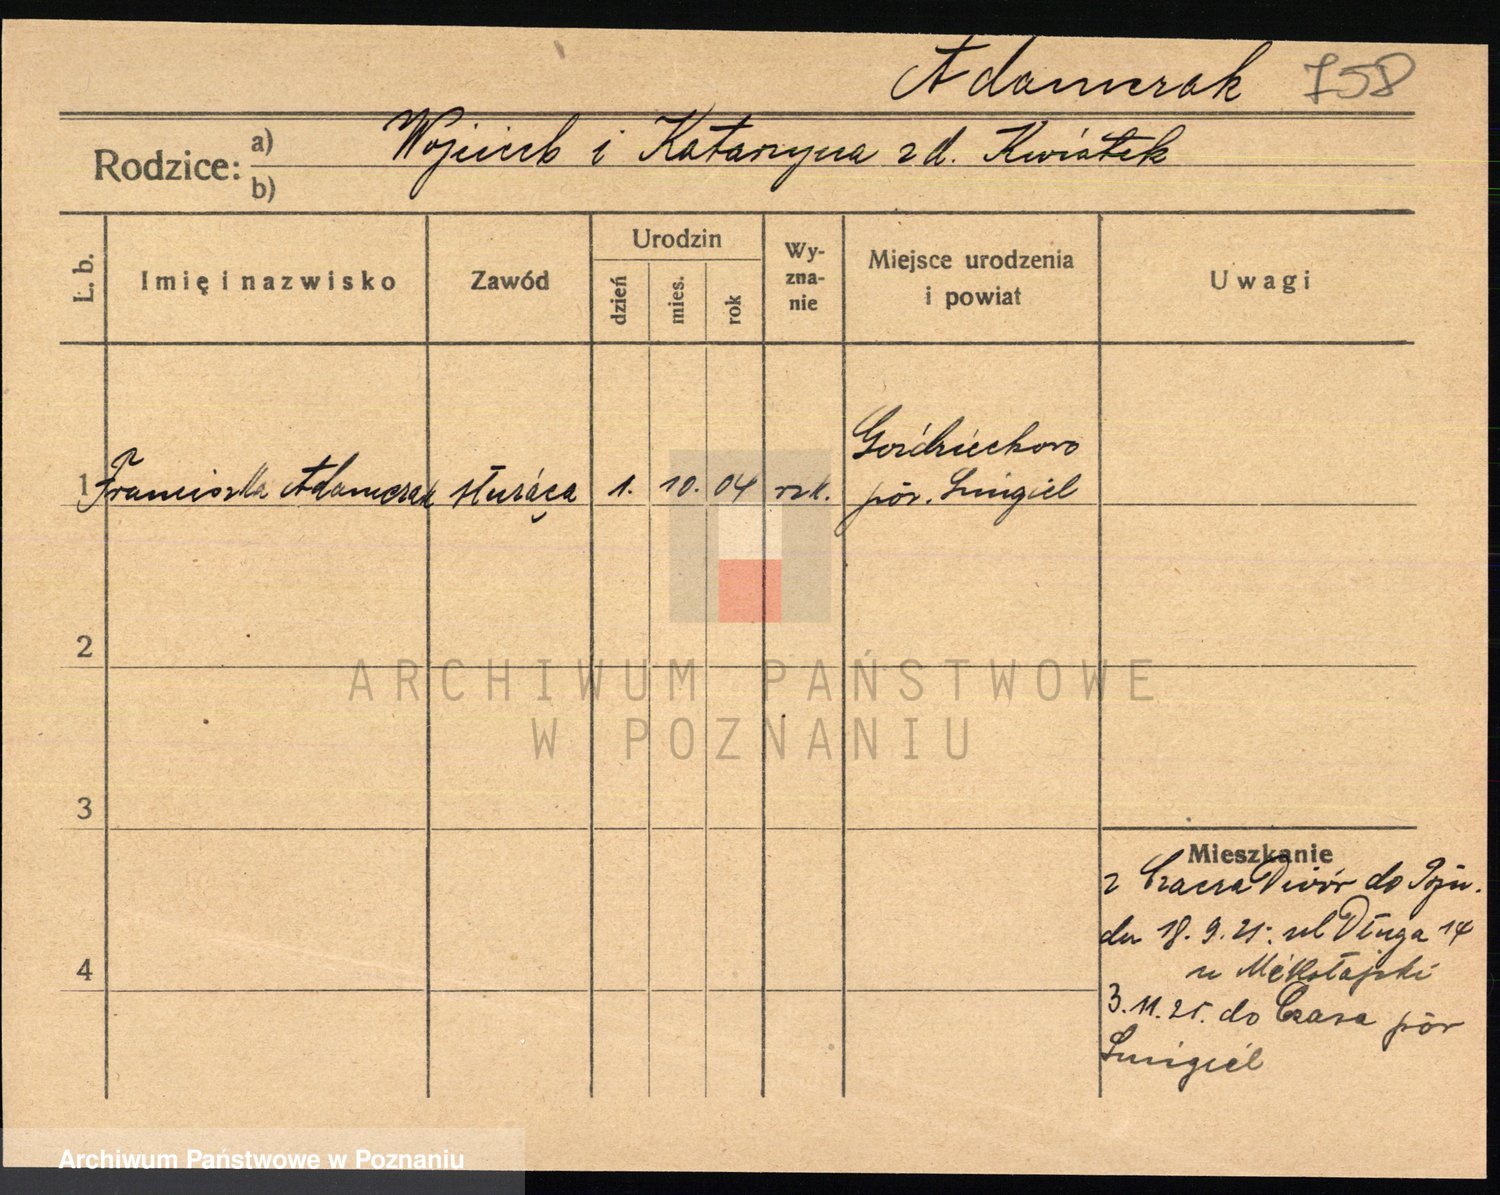 Adamczak 758
Rodzice: a) Wojciech i Katarzyna z d. Kwiatek
b)
L. b. Imię i nazwisko Zawód Urodzin dzień mies. rok Wyznanie Miejsce urodzenia i powiat Uwagi
1 Franciszka Adamczak służąca 1. 10. 04 rzk. Goździechowo
pow. Śmigiel
2
ARCHIWUM PAŃSTWOWE
W POZNANIU
3
Mieszkanie
z Czacza Dwór do Pozn.
dn 18. 9. 25. ul Długa 14
u Mikołajski
4
3. 11. 25. do Czacza pow
Śmigiel
Archiwum Państwowe w Poznaniu